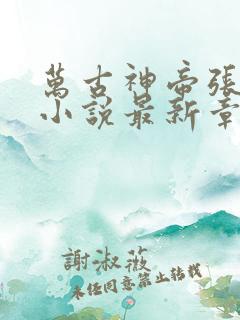 萬古神帝張
小說最新章
謝淑薇
未經同意禁止轉載